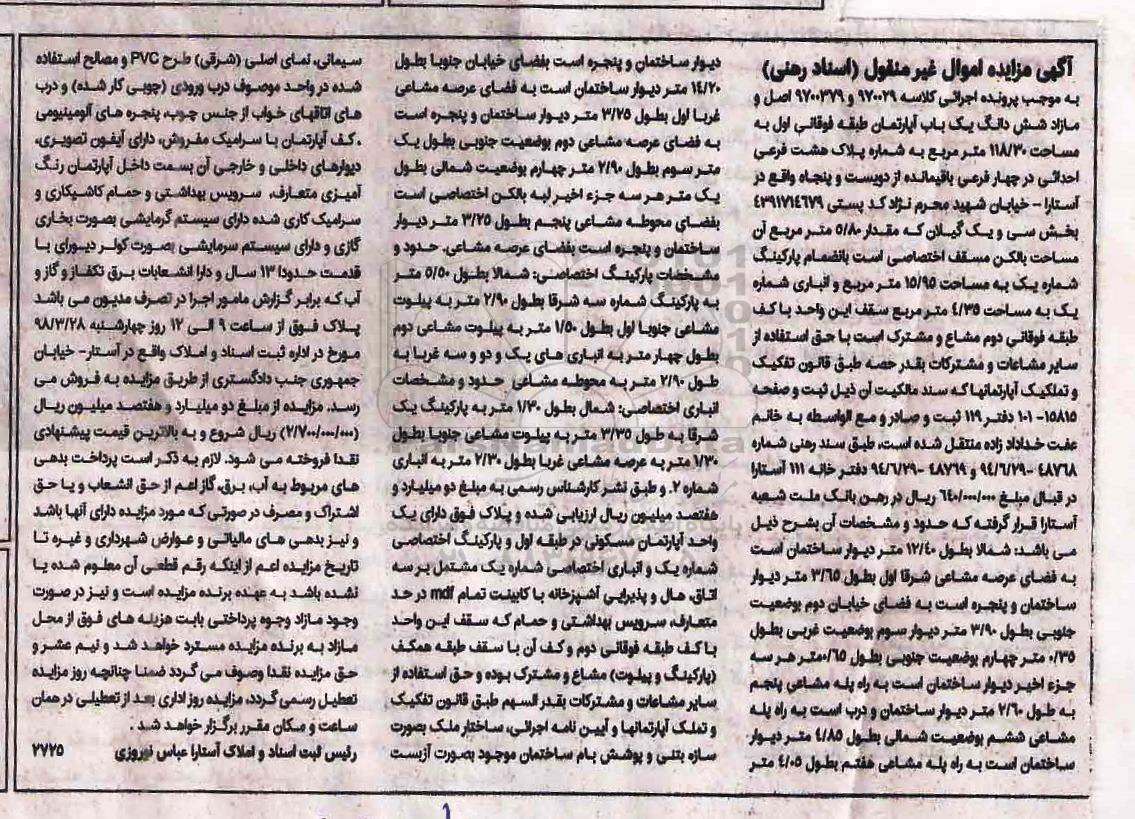 آگهی مزایده اموال غیر منقول (اسناد رهنی)
به موجب پرونده اجرائی کلاسه ۹۷۰۰۲۹ و ۹۷۰۰۳۷۹ اصل و
مازاد شش دانگ یک باب آپارتمان طبقه فوقانی اول به
مساحت ۱۱۸/۳۰ متر مربع به شماره پلاک هشت فرعی
احداثی در چهار فرعی باقیمانده از دویست و پنجاه واقع در
آستارا - خیابان شهید محرم نژاد کد پستی ۴۳۹۱۷۱۴۶۷۹
بخش سی و یک گیلان که مقدار ۵/۸۰ متر مربع آن
مساحت بالکن مسقف اختصاصی است بانضمام پارکینگ
شماره یک به مساحت ۱۵/۹۵ متر مربع و انباری شماره
یک به مساحت ۴/۳۵ متر مربع سقف این واحد با کف
طبقه فوقانی دوم مشاع و مشترک است با حق استفاده از
سایر مشاعات و مشترکات بقدر حصه طبق قانون تفکیک
و تملکیک آپارتمانها که سند مالکیت آن ذیل ثبت و صفحه
۱۵۸۱۵- ۱۰۱ دفتر ۱۱۹ ثبت و صادر و مع الواسطه به خانم
عفت خداداد زاده منتقل شده است، طبق سند رهنی شماره
۴۸۷۶۸ -۹۴/۶/۲۹ و ۴۸۷۶۹ -۹۴/۶/۲۹ دفتر خانه ۱۱۱ آستارا
در قبال مبلغ ۶۴۰/۰۰۰/۰۰۰ ریال در رهن بانک ملت شعبه
آستارا قرار گرفته که حدود و مشخصات آن بشرح ذیل
می باشد: شمالا بطول ۱۲/۴۰ متر دیوار ساختمان است
به فضای عرصه مشاعی شرقا اول بطول ۳/۶۵ متر دیوار
ساختمان و پنجره است به فضای خیابان دوم بوضعیت
جنوبی بطول ۳/۹۰ متر دیوار سوم بوضعیت غربی بطول
۰/۳۵ متر چهارم بوضعیت جنوبی بطول ۰/۶۵متر هر سه
جزء اخیر دیوار ساختمان است به راه پله مشاعی پنجم
به طول ۲/۶۰ متر دیوار ساختمان و درب است به راه پله
مشاعی ششم بوضعیت شمالی بطول ۴/۸۵ متر دیوار
ساختمان است به راه پله مشاعی هفتم بطول ۴/۰۵ متر
دیوار ساختمان و پنجره است بفضای خیابان جنوبا بطول
۱۴/۲۰ متر دیوار ساختمان است به فضای عرصه مشاعی
غربا اول بطول ۳/۲۵ متر دیوار ساختمان و پنجره است
به فضای عرصه مشاعی دوم بوضعیت جنوبی بطول یک
متر سوم بطول ۲/۹۰ متر چهارم بوضعیت شمالی بطول
یک متر هر سه جزء اخیر لبه بالکن اختصاصی است
بفضای محوطه مشاعی پنجم بطول ۳/۲۵ متر دیوار
ساختمان و پنجره است بفضای عرصه مشاعی. حدود و
مشخصات پارکینگ اختصاصی: شمالا بطول ۵/۵۰ متر
به پارکینگ شماره سه شرقا بطول ۲/۹۰ متر به پیلوت
مشاعی جنوبا اول بطول ۱/۵۰ متر به پیلوت مشاعی دوم
بطول چهار متر به انباری های یک و دو و سه غربا به
طول ۲/۹۰ متر به محوطه مشاعی حدود و مشخصات
انباری اختصاصی: شمال بطول ۱/۳۰ متر به پارکینگ یک
شرقا به طول ۳/۳۵ متر به پیلوت مشاعی جنوبا بطول
۱/۳۰ متر به عرصه مشاعی غربا بطول ۲/۳۰ متر به انباری
شماره ۲. و طبق نشر کارشناس رسمی به مبلغ دو میلیارد و
هفتصد میلیون ریال ارزیابی شده و پلاک فوق دارای یک
واحد آپارتمان مسکونی در طبقه اول و پارکینگ اختصاصی
شماره یک و انباری اختصاصی شماره یک مشتمل بر سه
اتاق، هال و پذیرایی آشپزخانه با کابینت تمام mdf در حد
متعارف، سرویس بهداشتی و حمام که سقف این واحد
با کف طبقه فوقانی دوم و کف آن با سقف طبقه همکف
(پارکینگ و پیلوت) مشاع و مشترک بوده و حق استفاده از
سایر مشاعات و مشترکات بقدر السهم طبق قانون تفکیک
و تملک آپارتمانها و آیین نامه اجرائی، ساختار ملک بصورت
سازه بتنی و پوشش بام ساختمان موجود بصورت آزبست
سیمانی، نمای اصلی (شرقی) طرح PVC و مصالح استفاده
شده در واحد موصوف درب ورودی (چوبی کار شده) و درب
های اتاقهای خواب از جنس چوب، پنجره های آلومینیومی
، کف آپارتمان با سرامیک مفروش، دارای آیفون تصویری،
دیوارهای داخلی و خارجی آن بسمت داخل آپارتمان رنگ
آمیزی متعارف، سرویس بهداشتی و حمام کاشیکاری و
سرامیک کاری شده دارای سیستم گرمایشی بصورت بخاری
گازی و دارای سیستم سرمایشی بصورت کولر دیورای با
قدمت حدودا ۱۳ سال و دارا انشعابات برق تکفاز و گاز و
آب که برابر گزارش مامور اجرا در تصرف مدیون می باشد
پلاک فوق از ساعت ۹ الی ۱۲ روز چهارشنبه ۹۸/۳/۲۸
مورخ در اداره ثبت اسناد و املاک واقع در آستار- خیابان
جمهوری جنب دادگستری از طریق مزایده به فروش می
رسد. مزایده از مبلغ دو میلیارد و هفتصد میلیون ریال
(۲/۷۰۰/۰۰۰/۰۰۰) ریال شروع و به بالاترین قیمت پیشنهادی
نقدا فروخته می شود. لازم به ذکر است پرداخت بدهی
های مربوط به آب، برق، گاز اعم از حق انشعاب و یا حق
اشتراک و مصرف در صورتی که مورد مزایده دارای آنها باشد
و نیز بدهی های مالیاتی و عوارض شهرداری و غیره تا
تاریخ مزایده اعم از اینکه رقم قطعی آن معلوم شده یا
نشده باشد به عهده برنده مزایده است و نیز در صورت
وجود مازاد وجوه پرداختی بابت هزینه های فوق از محل
مازاد به برنده مزایده مسترد خواهد شد و نیم عشر و
حق مزایده نقدا وصوف می گردد ضمنا چنانچه روز مزایده
تعطیل رسمی گردد، مزایده روز اداری بعد از تعطیلی در همان
ساعت و مکان مقرر برگزار خواهد شد .
رئیس ثبت اسناد و املاک آستارا عباس نوروزی ۲۷۲۵